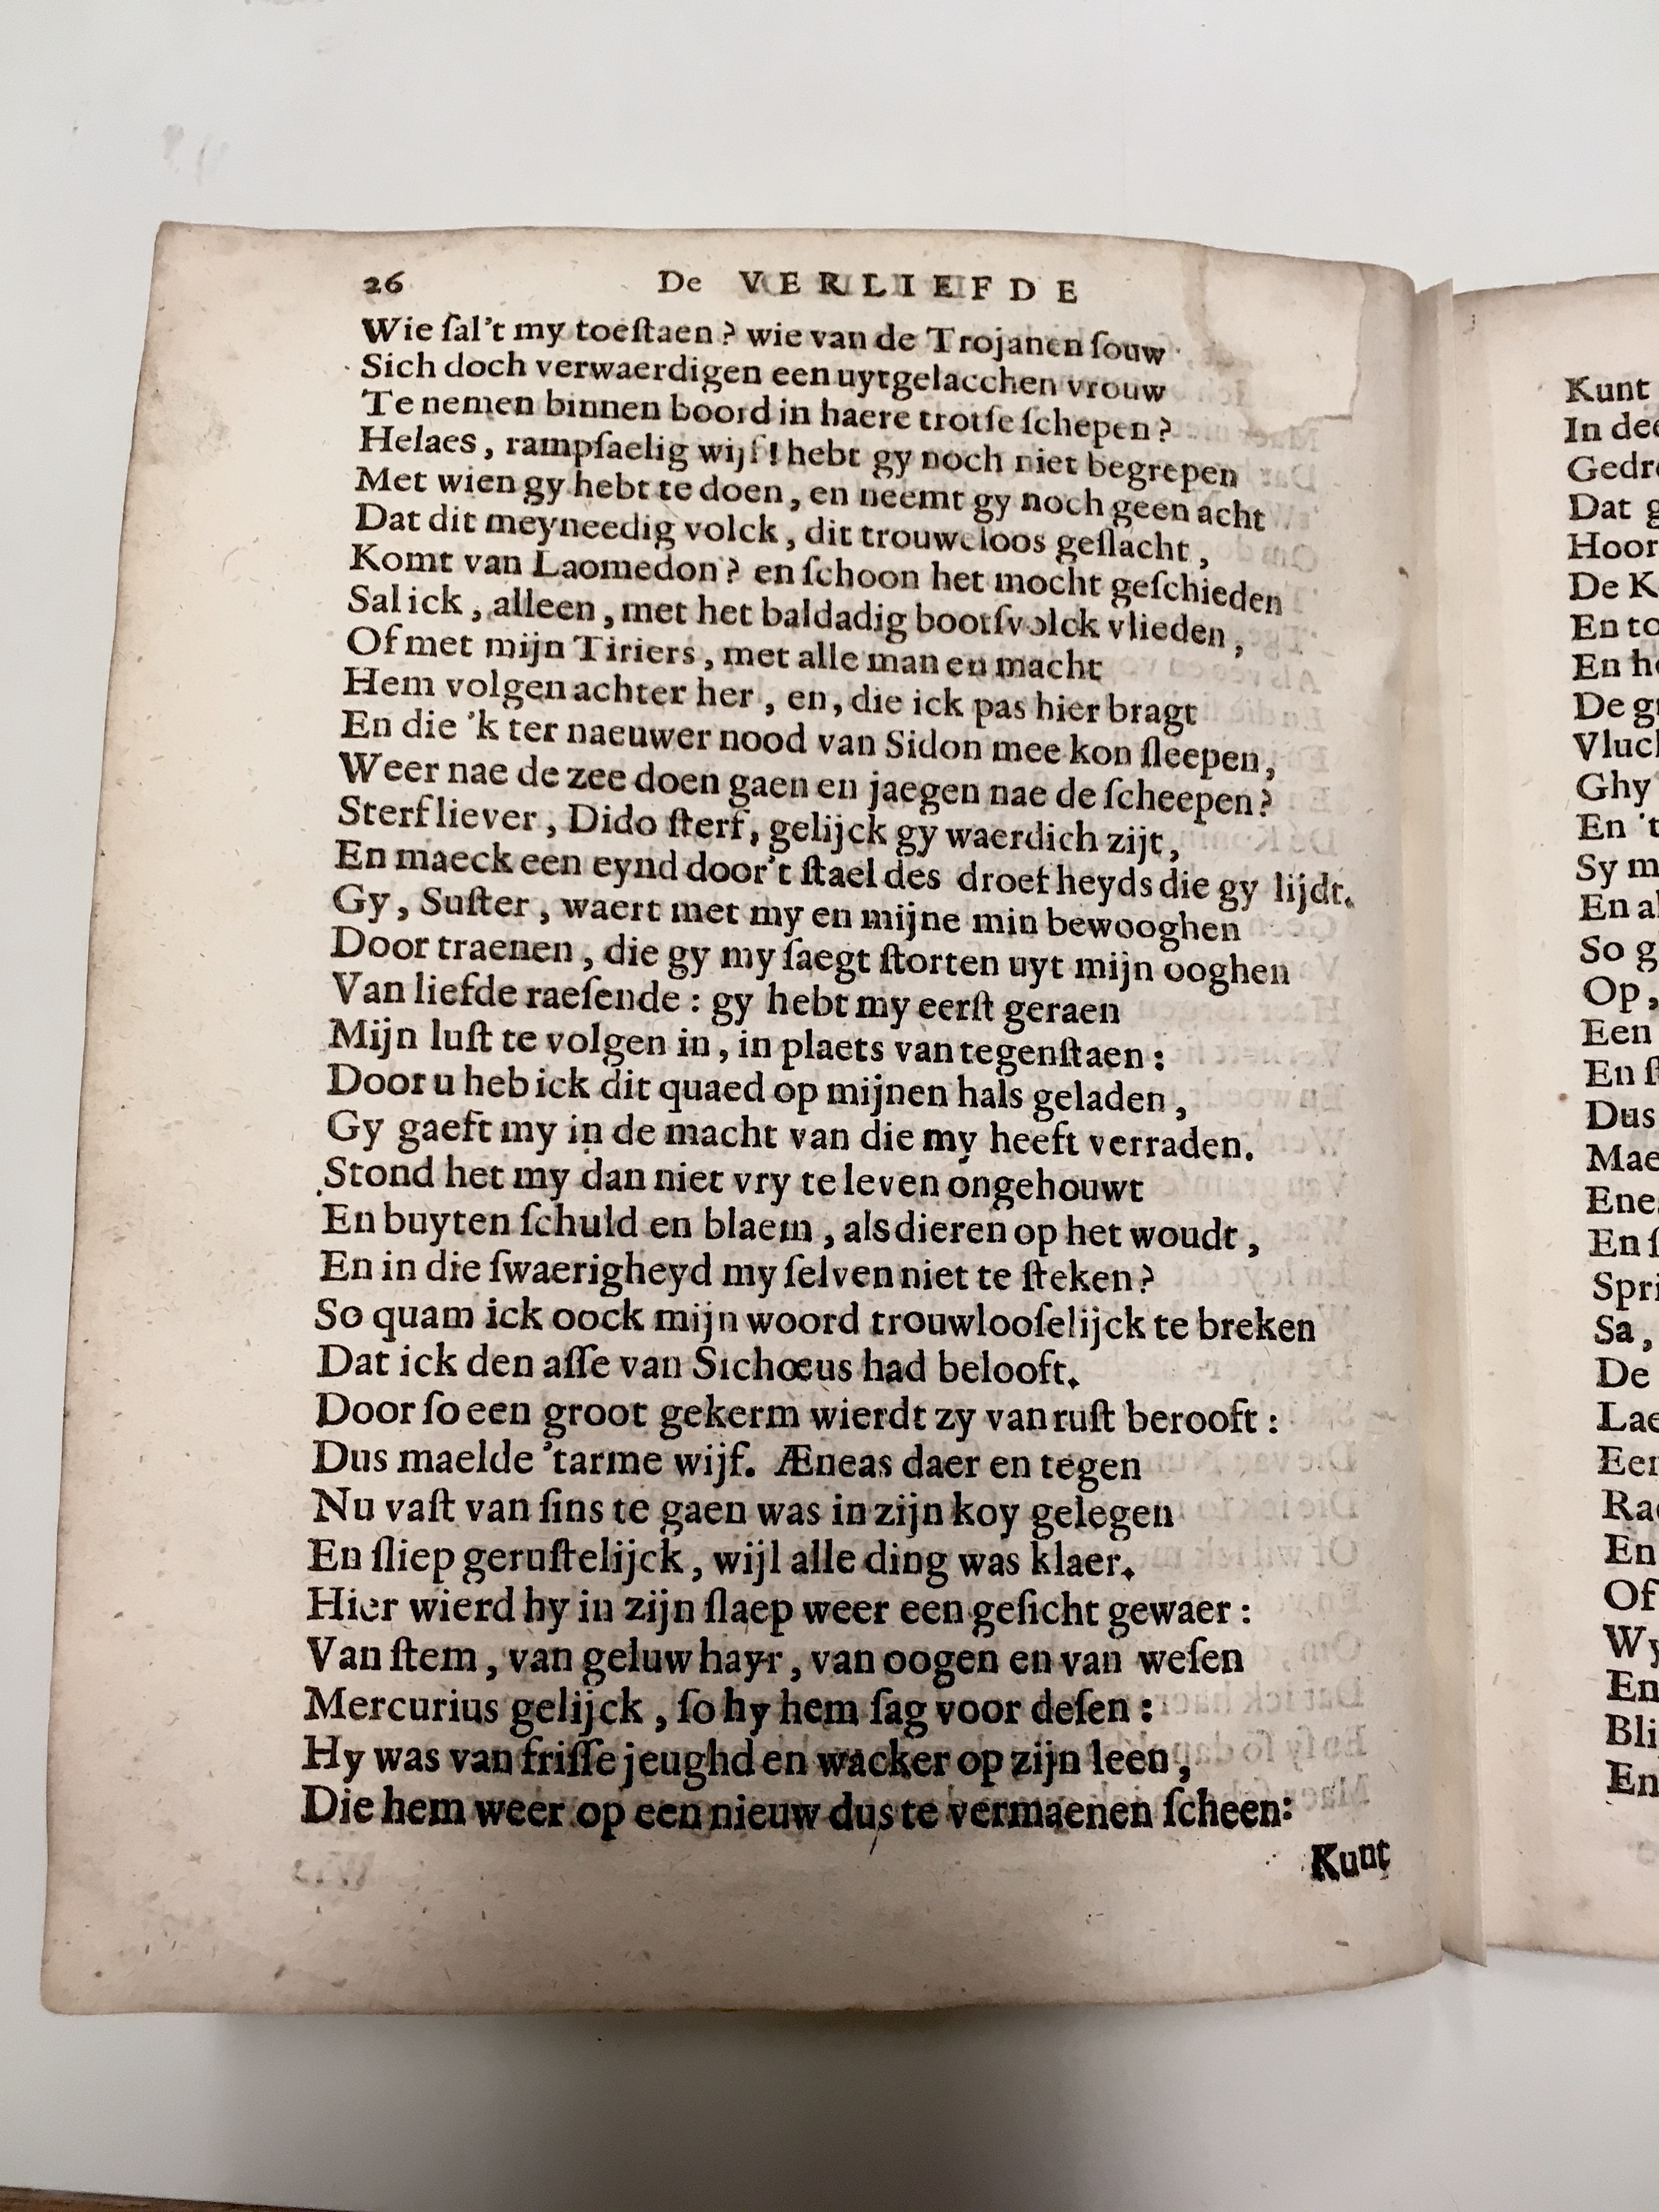 26 De VERLIEFDE
Wie ſal't my toeſtaen? wie van de Trojanen ſouw
Sich doch verwaerdigen een uytgelacchen vrouw
Te nemen binnen boord in haere trotſe ſchepen?
Helaes, rampſaelig wijf! hebt gy noch niet begrepen
Met wien gy hebt te doen, en neemt gy noch geen acht
Dat dit meyneedig volck, dit trouweloos geſlacht,
Komt van Laomedon? en ſchoon het mocht geſchieden
Sal ick, alleen, met het baldadig bootſvolck vlieden,
Of met mijn Tiriers, met alle man en macht
Hem volgen achter her, en, die ick pas hier bragt
En die 'k ter naeuwer nood van Sidon mee kon ſleepen,
Weer nae de zee doen gaen en jaegen nae de ſcheepen?
Sterf liever, Dido ſterf, gelijck gy waerdich zijt,
En maeck een eynd door't ſtael des droefheyds die gy lijdt.
Gy, Suſter, waert met my en mijne min bewooghen
Door traenen, die gy my ſaegt ſtorten uyt mijn ooghen
Van liefde raeſende: gy hebt my eerſt geraen
Mijn luſt te volgen in, in plaets van tegenſtaen:
Door u heb ick dit quaed op mijnen hals geladen,
Gy gaeft my in de macht van die my heeft verraden.
Stond het my dan niet vry te leven ongehouwt
En buyten ſchuld en blaem, als dieren op het woudt,
En in die ſwaerigheyd my ſelven niet te ſteken?
So quam ick oock mijn woord trouwlooſelijck te breken
Dat ick den aſſe van Sichœus had belooft.
Door ſo een groot gekerm wierdt zy van ruſt berooft:
Dus maelde 'tarme wijf. Æneas daer en tegen
Nu vaſt van ſins te gaen was in zijn koy gelegen
En ſliep geruſtelijck, wijl alle ding was klaer.
Hier wierd hy in zijn ſlaep weer een geſicht gewaer:
Van ſtem, van geluw hayr, van oogen en van weſen
Mercurius gelijck, ſo hy hem ſag voor deſen:
Hy was van friſſe jeughd en wacker op zijn leen,
Die hem weer op een nieuw dus te vermaenen ſcheen:
Kunt
Kunt
In
Dat
Hoor
De
En
En
De
Vluc
Ghy
En 't
Sy
En
So
Op,
Een
En
Dus
Mae
Ene
En
Spri
Sa,
De
Lae
En
Of
Wy
En
Bli
En